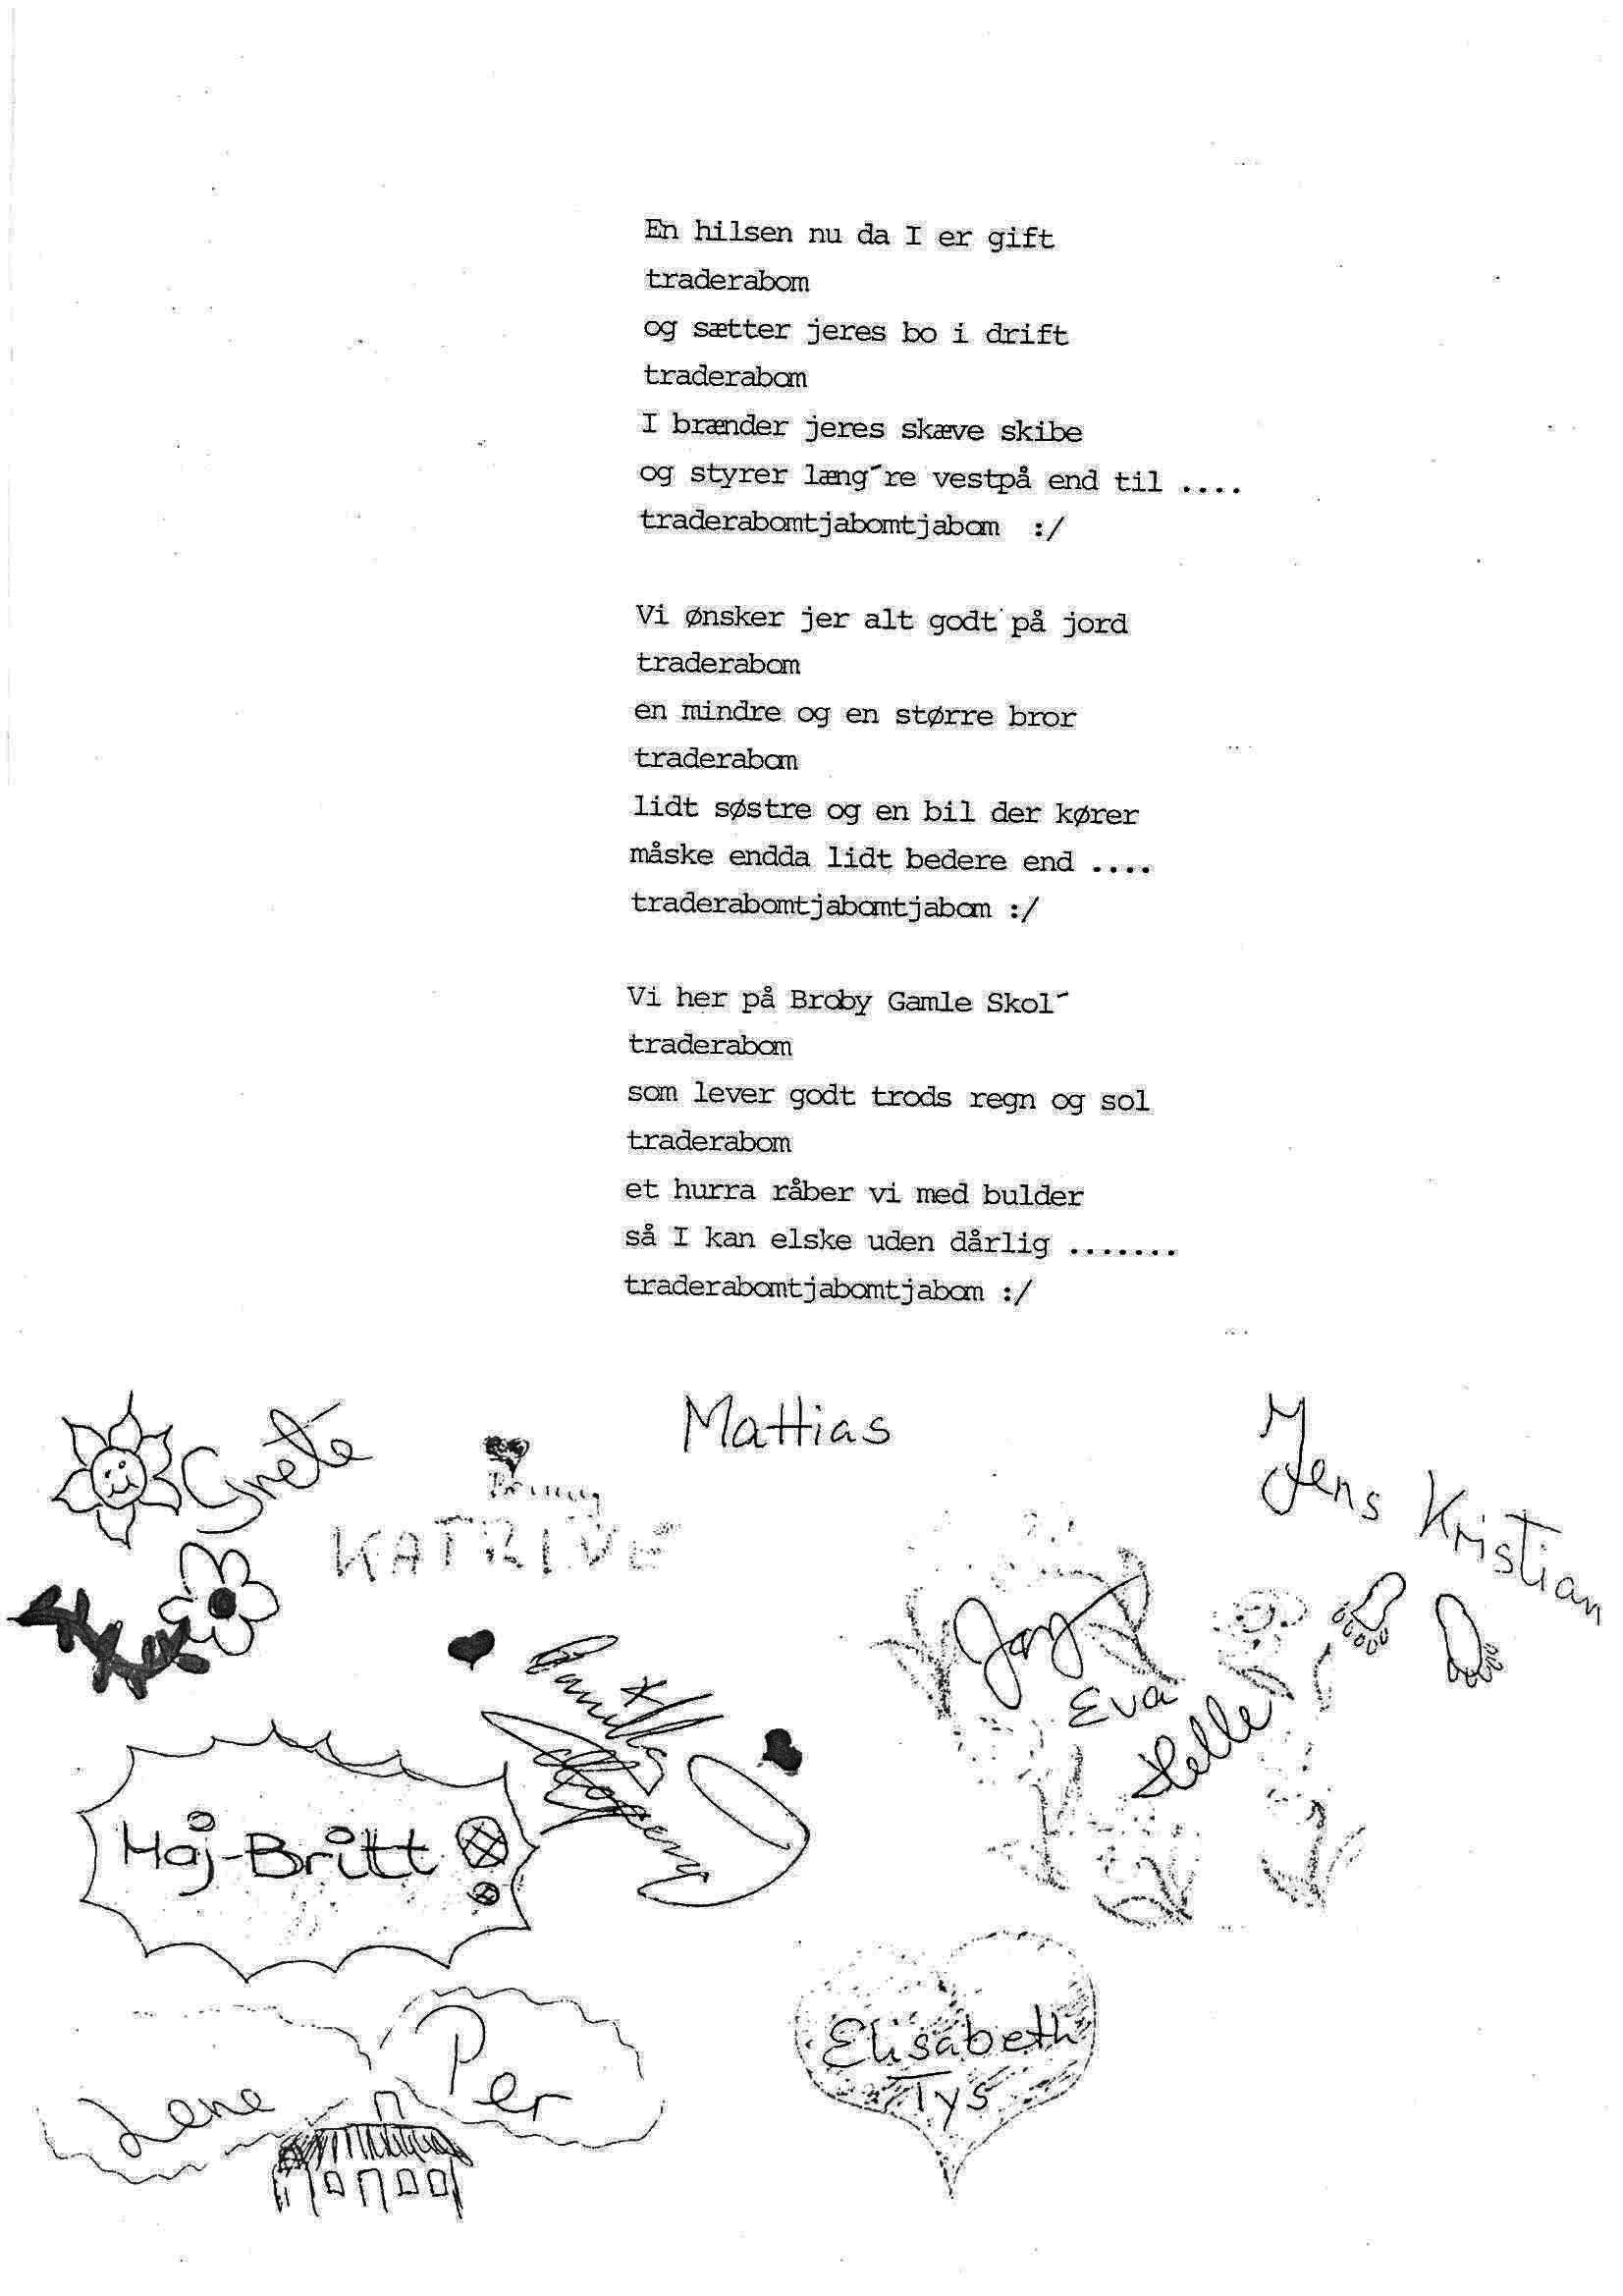 En hilsen nu da I er gift
traderabom
og sætter jeres bo i drift
traderabom
I brænder jeres skæve skibe
og styrer læng´re vestpå end til ....
traderabomtjabomtjabom :/
Vi ønsker jer alt godt på jord
traderabom
en mindre og en større bror
traderabom
lidt søstre og en bil der kører
måske endda lidt bedere end ....
traderabomtjabomtjabom :/
Vi her på Broby Gamle Skol´
traderabom
som lever godt trods regn og sol
traderabom
et hurra råber vi med bulder
så I kan elske uden dårlig .......
traderabomtjabomtjabom :/
Mattias
Grete
Jens Kristian
KATRINE
Eva
Helle
Maj-Britt
Per
Lene
Elisabeth
Tys